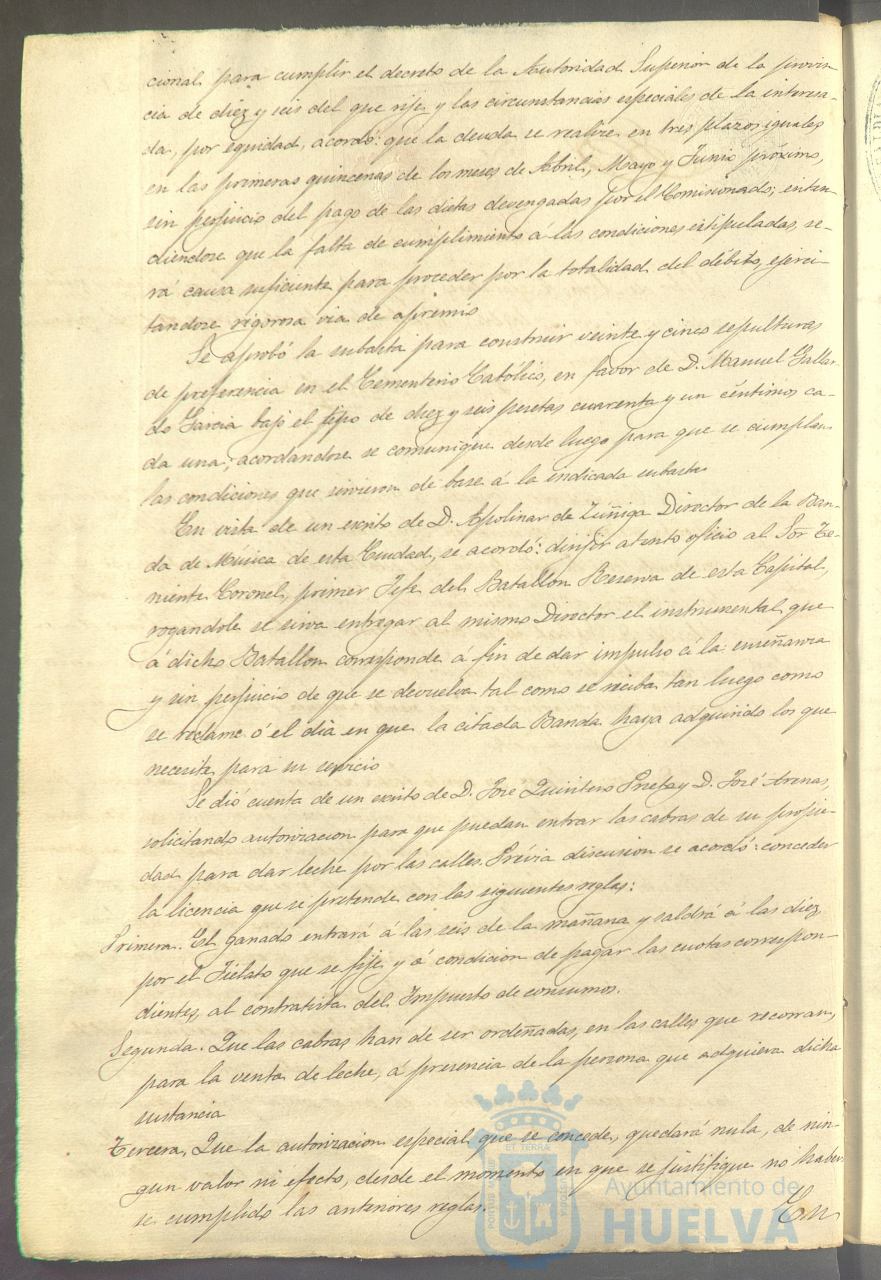 cional para cumplir el decreto de la Autoridad Superior de la provin-
cia de diez y seis del que rije y las circunstancias especiales de la interesa-
da, por equidad, acordó: que la deuda se realize en tres plazos iguales
en las primeras quincenas de los meses de Abril, Mayo y Junio próximo,
sin perjuicio del pago de las dietas devengadas por el Comisionado; enten-
diendose que la falta de cumplimiento á las condiciones estipuladas, se-
rá causa suficiente para proceder por la totalidad del débito, ejerci-
tandose rigorosa via de apremio
Se aprobó la subasta para construir veinte y cinco sepulturas
de preferencia en el Cementerio Católico, en favor de D. Manuel Gallar-
do Garcia bajo el tipo de diez y seis pesetas cuarenta y un céntimos ca-
da una, acordandose se comunique desde luego para que se cumplan
las condiciones que sirvieron de base á la indicada subasta
En vista de un escrito de D. Apolinar de Zúñiga Director de la Ban-
da de Música de esta Ciudad, se acordó: dirijir atento oficio al Sor. Te-
niente Coronel, primer Jefe del Batallon Reserva de esta Capital,
rogandole se sirva entregar al mismo Director el instrumental que
á dicho Batallon corresponde á fin de dar impulso á la enseñanza
y sin perjuicio de que se devuelva tal como se reciba tan luego como
se reclame ó el dia en que la citada Banda haya adquirido los que
necesite para su servicio
Se dió cuenta de un escrito de D. José Quintero Prieta y D. José Arenas,
solicitando autorizacion para que puedan entrar las cabras de su propie-
dad para dar leche por las calles. Prévia discusion se acordó: conceder
la licencia que se pretende con las siguientes reglas:
Primera. El ganado entrará á las seis de la mañana y saldrá á las diez,
por el Fielato que se fije y á condicion de pagar las cuotas correspon-
dientes, al contratista del Impuesto de consumos.
Segunda. Que las cabras han de ser ordeñadas, en las calles que recorran,
para la venta de leche, á presencia de la persona que adquiera dicha
sustancia
Tercera. Que la autorizacion especial que se concede, quedará nula, de nin-
gun valor ni efecto, desde el momento en que se justifique no haber
se cumplido las anteriores reglas.
En
ET TERRA
PORTUS
Ayuntamiento de
HUELVA